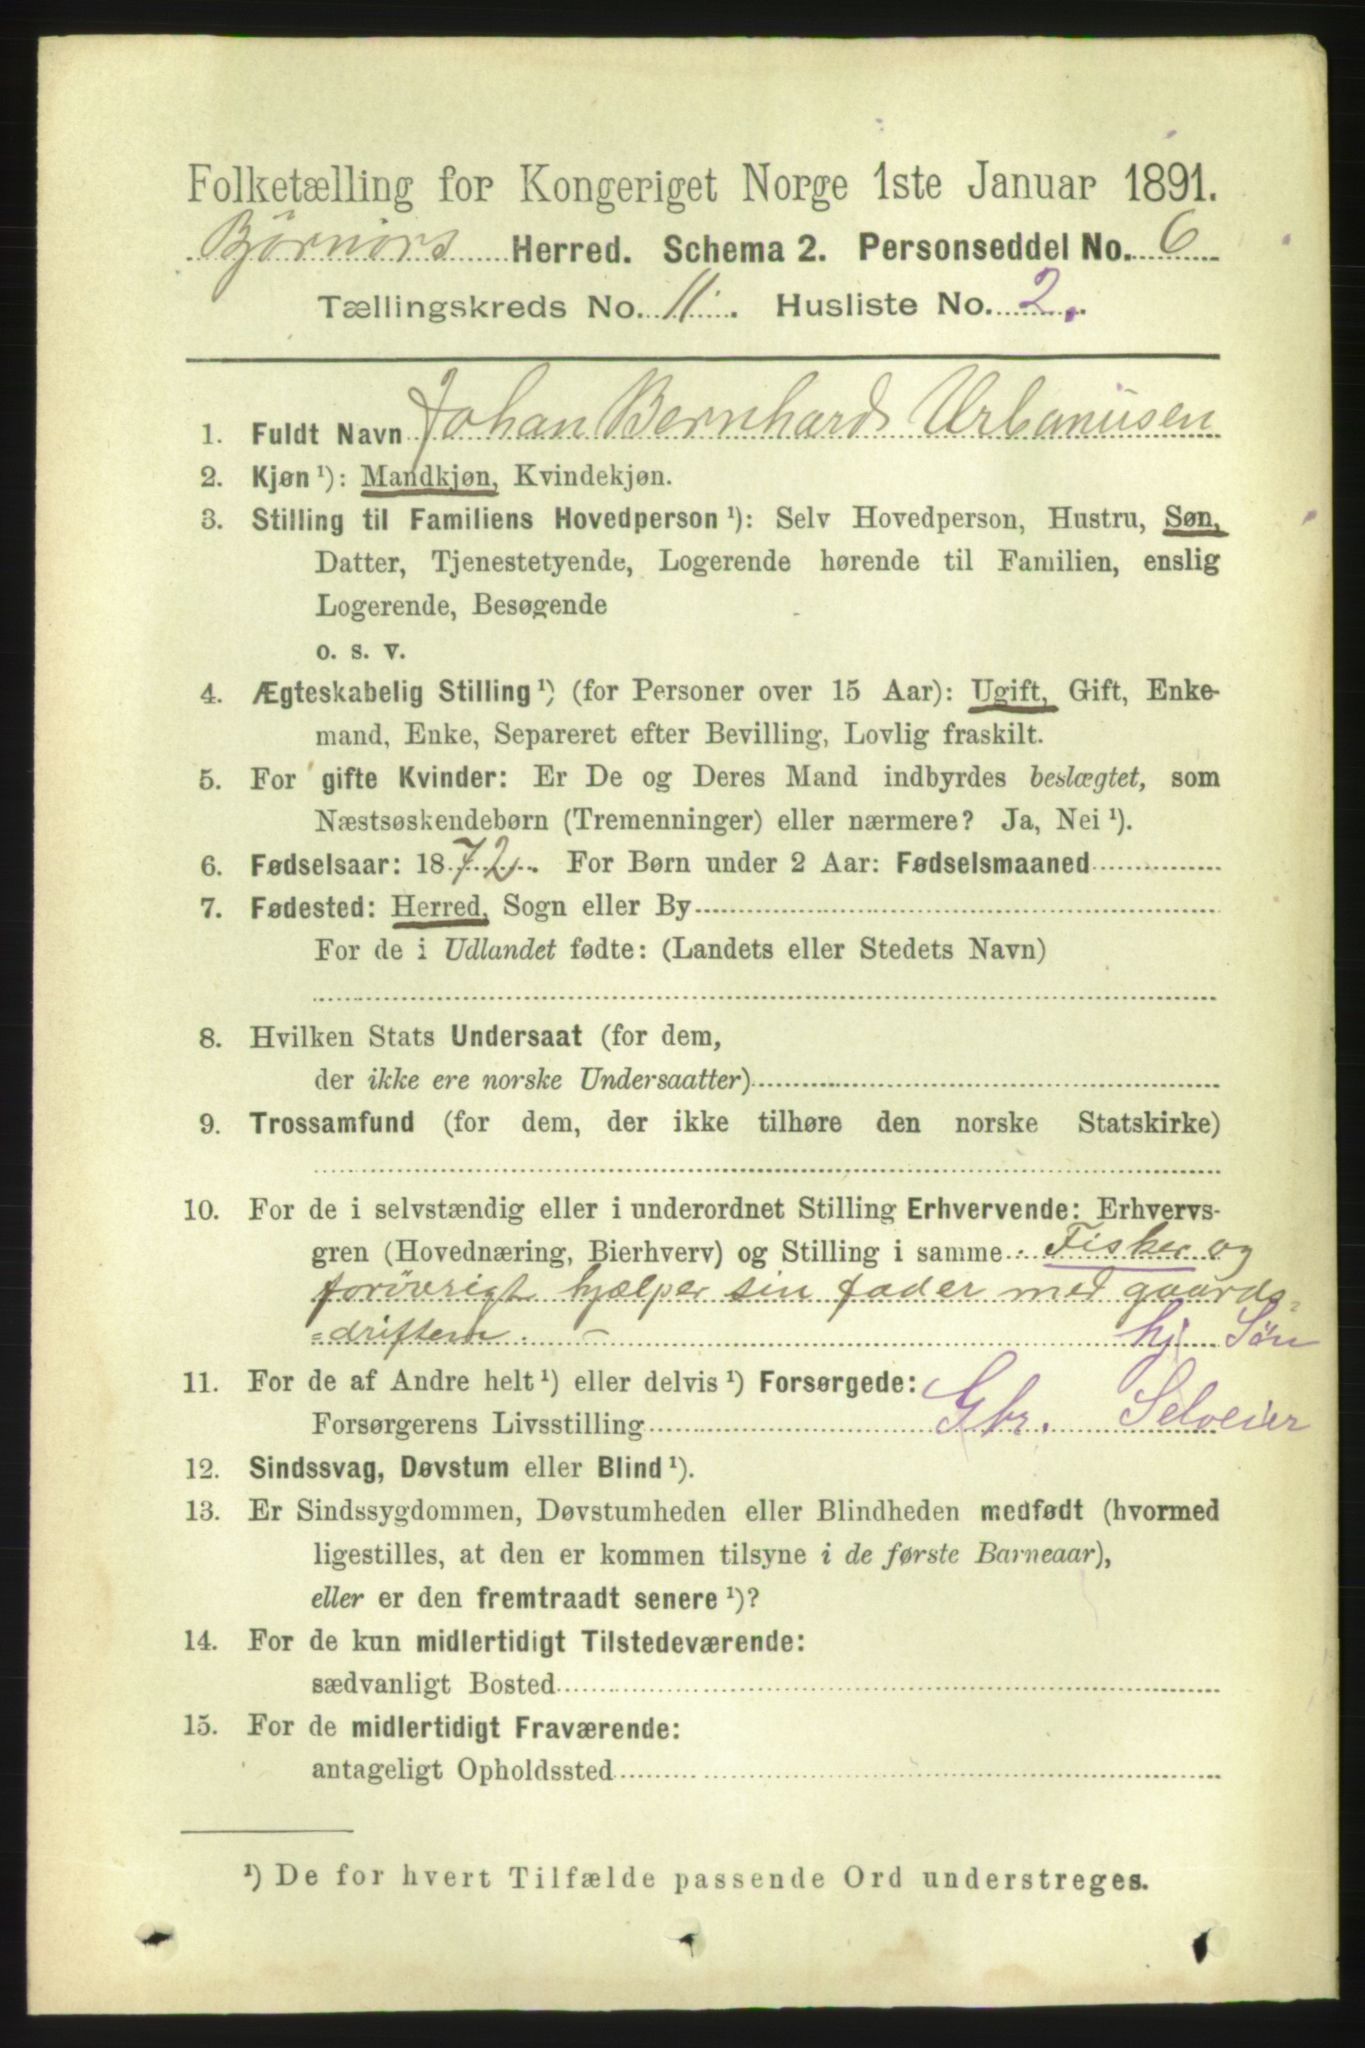 Folketælling for Kongeriget Norge 1ste Januar 1891.
Bjørnørs Herred. Schema 2. Personseddel No. 6
Tællingskreds No. 11. Husliste No. 2.
1. Fuldt Navn Johan Bernhard Urbanusen
2. Kjøn¹): Mandkjøn, Kvindekjøn.
3. Stilling til Familiens Hovedperson¹): Selv Hovedperson, Hustru, Søn,
Datter, Tjenestetyende, Logerende hørende til Familien, enslig
Logerende, Besøgende
o. s. v.
4. Ægteskabelig Stilling¹) (for Personer over 15 Aar): Ugift, Gift, Enke-
mand, Enke, Separeret efter Bevilling, Lovlig fraskilt.
5. For gifte Kvinder: Er De og Deres Mand indbyrdes beslægtet, som
Næstsøskendebørn (Tremenninger) eller nærmere? Ja, Nei¹).
6. Fødselsaar: 1872. For Børn under 2 Aar: Fødselsmaaned
7. Fødested: Herred, Sogn eller By
For de i Udlandet fødte: (Landets eller Stedets Navn)
8. Hvilken Stats Undersaat (for dem,
der ikke ere norske Undersaatter)
9. Trossamfund (for dem, der ikke tilhøre den norske Statskirke)
10. For de i selvstændig eller i underordnet Stilling Erhvervende: Erhvervs-
gren (Hovednæring, Bierhverv) og Stilling i samme Fisker og
forøvrigt hjælper sin fader med gaards-
=driften. - hj. Søn
11. For de af Andre helt¹) eller delvis¹) Forsørgede:
Forsørgerens Livsstilling Gbr. Selveier
12. Sindssvag, Døvstum eller Blind¹).
13. Er Sindssygdommen, Døvstumheden eller Blindheden medfødt (hvormed
ligestilles, at den er kommen tilsyne i de første Barneaar),
eller er den fremtraadt senere¹)?
14. For de kun midlertidigt Tilstedeværende:
sædvanligt Bosted
15. For de midlertidigt Fraværende:
antageligt Opholdssted
¹) De for hvert Tilfælde passende Ord understreges.